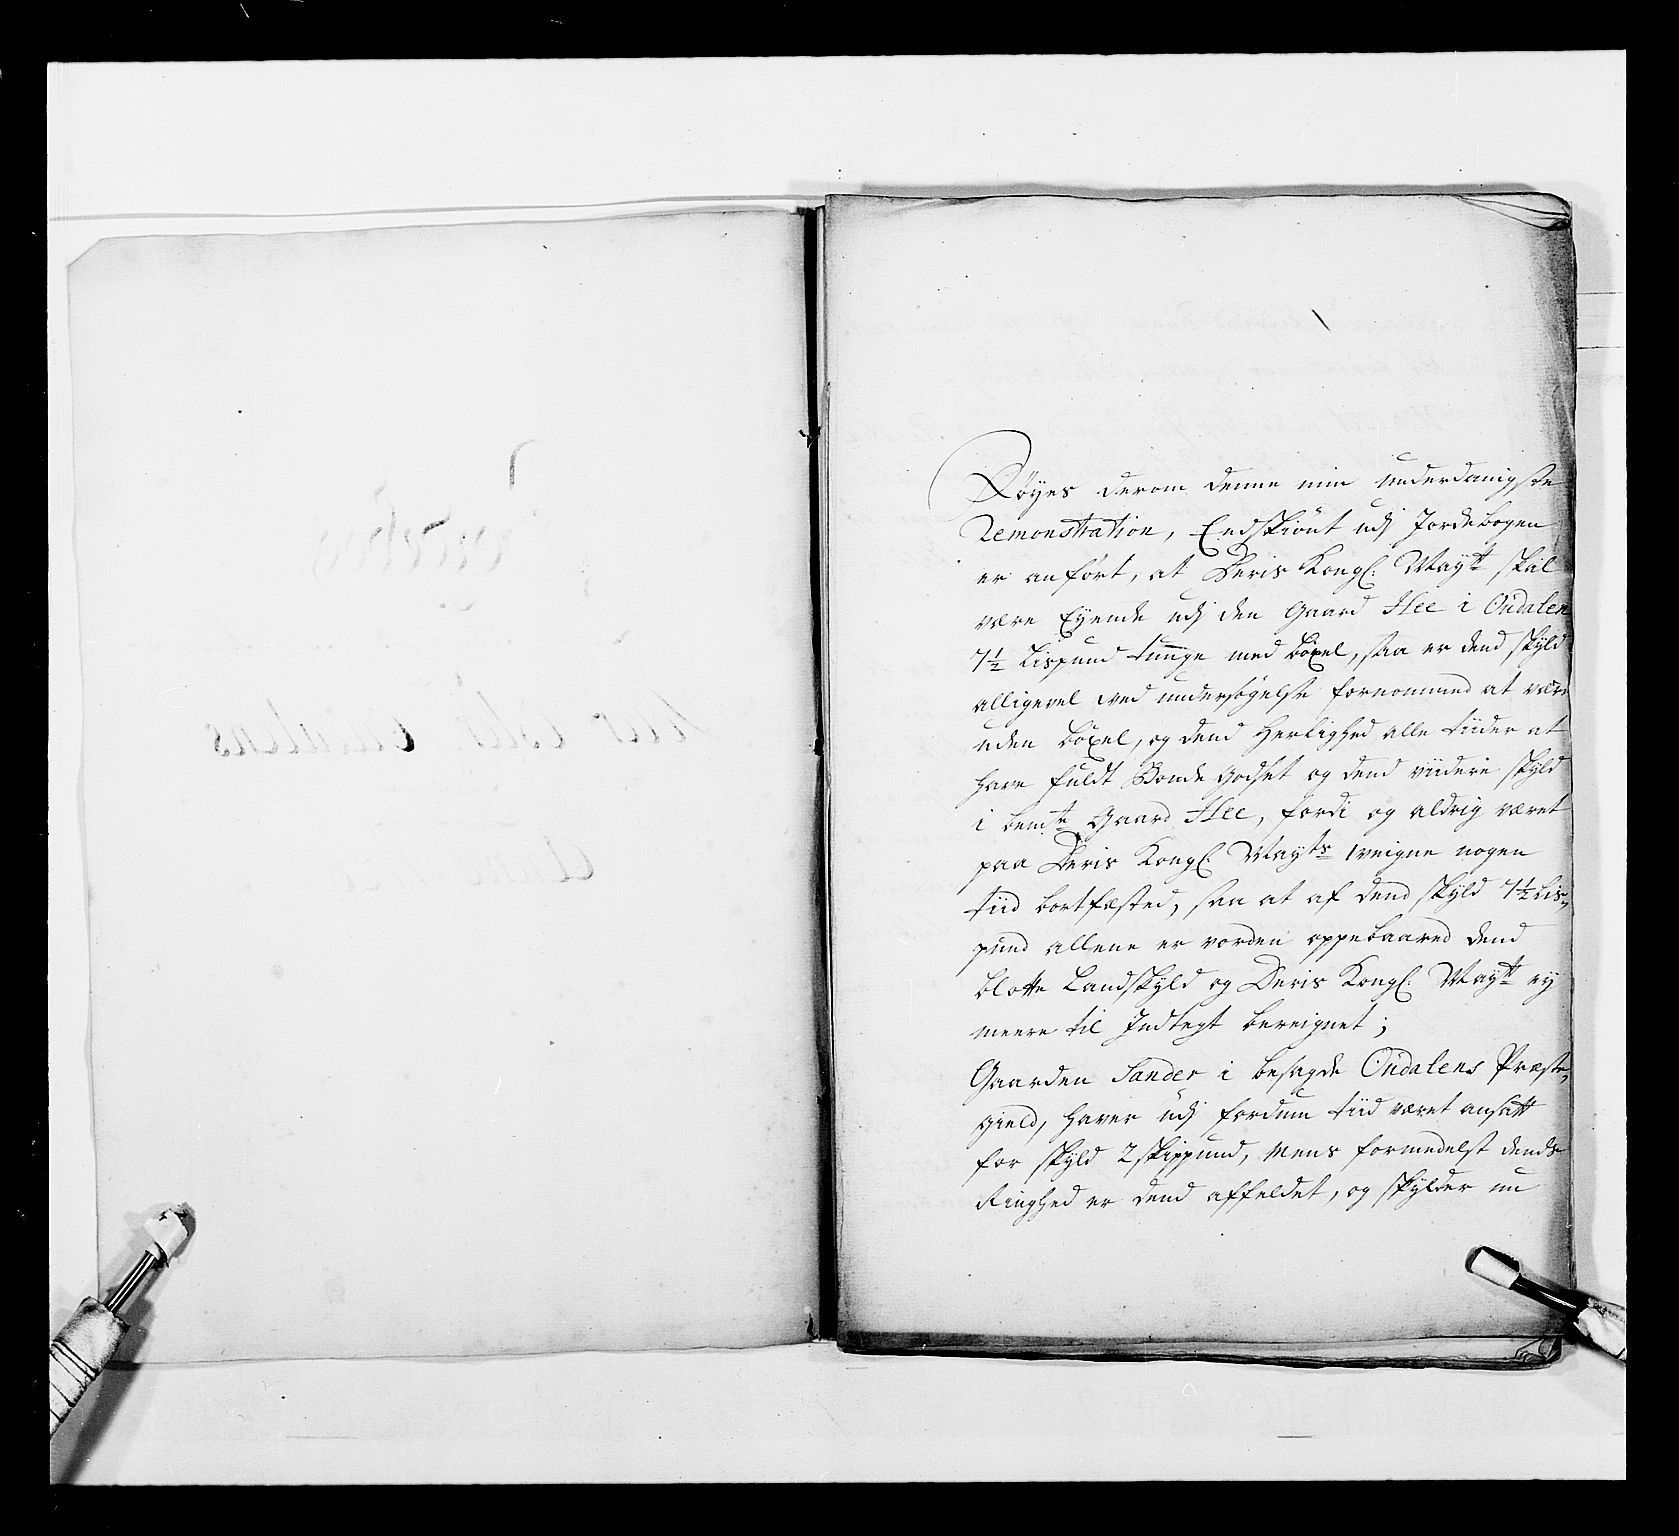 Føyes derom denne min underdanigste
Remonstration, Endskiönt udj Jordebogen
er anfört, at Deris Kongl: Mayᵗᵗ skal
være Eyende udj den Gaard Hee i Oudalen
7½ Lispund tunge med böxel, saa er dend skyld
alligevel ved undersögelse fornommed at være
uden böxel, og dend herlighed alle tiider at
have fuldt Bonde Godset og dend viidere skyld
i bemᵗᵉ Gaard Hee, fordi og aldrig været
paa Deris Kongl: Mayᵗˢ weigne nogen
tiid bortfæsted, saa at af dend skyld 7½ Lis-
pund allene er vorden oppebaared dend
blotte Landskyld og Deris Kongl: Mayᵗᵗ ey
meere til Indtegt bereignet;
Gaarden Sander i besagde Oudalens Præste-
gield, haver udj fordum tiid været ansatt
for skyld 2 skippund, mens formedelst dends
Ringhed er dend affeldet, og skylder nu